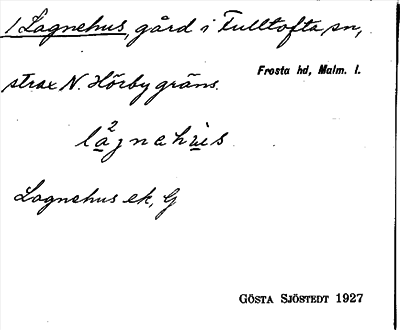 1 Lagnehus, gård i Fulltofta sn,
Frosta hd, Malm. l.
strax N. Hörby gräns.
Lagnehus ek, G
GÖSTA SJÖSTEDT 1927